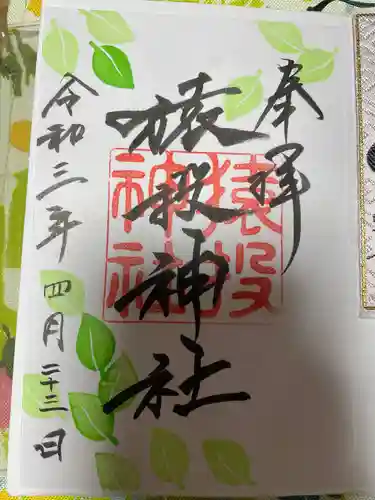 奉拝
猿投神社
猿投神社
令和三年四月二十三日